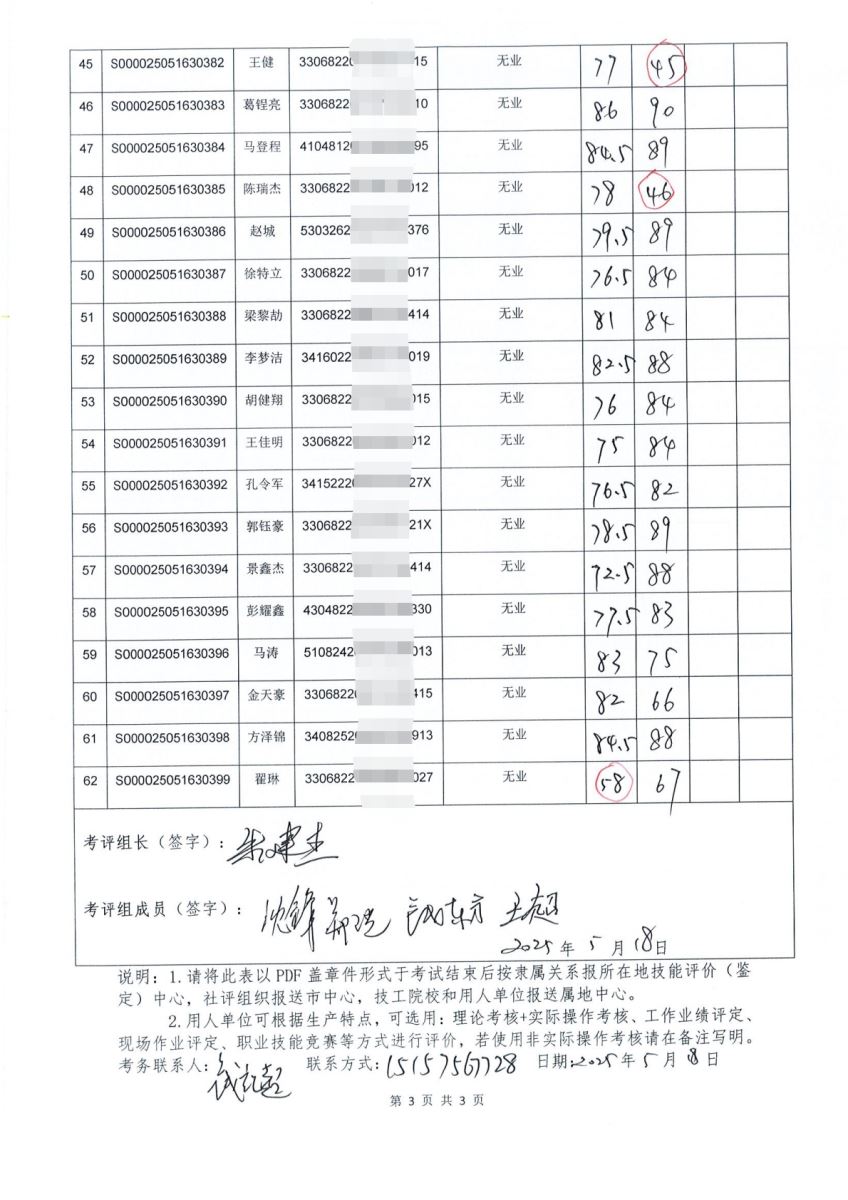 45 S000025051630382 王健 3306822 15 无业 77 45
46 S000025051630383 葛锃亮 3306822 10 无业 86 90
47 S000025051630384 马登程 4104812 95 无业 84.5 89
48 S000025051630385 陈瑞杰 3306822 012 无业 78 46
49 S000025051630386 赵城 5303262 376 无业 79.5 89
50 S000025051630387 徐特立 3306822 017 无业 76.5 84
51 S000025051630388 梁黎劼 3306822 414 无业 81 84
52 S000025051630389 李梦洁 3416022 019 无业 82.5 88
53 S000025051630390 胡健翔 3306822 015 无业 76 84
54 S000025051630391 王佳明 3306822 012 无业 75 84
55 S000025051630392 孔令军 3415222 27X 无业 76.5 82
56 S000025051630393 郭钰豪 3306822 21X 无业 78.5 89
57 S000025051630394 景鑫杰 3306822 414 无业 72.5 88
58 S000025051630395 彭耀鑫 4304822 330 无业 77.5 83
59 S000025051630396 马涛 5108242 013 无业 83 75
60 S000025051630397 金天豪 3306822 415 无业 82 66
61 S000025051630398 方泽锦 3408252 913 无业 84.5 88
62 S000025051630399 翟琳 3306822 027 无业 58 67
考评组长（签字）：
考评组成员（签字）： 王超
2025年5月18日
说明：1.请将此表以PDF盖章件形式于考试结束后按隶属关系报所在地技能评价（鉴
定）中心，社评组织报送市中心，技工院校和用人单位报送属地中心。
2.用人单位可根据生产特点，可选用：理论考核+实际操作考核、工作业绩评定、
现场作业评定、职业技能竞赛等方式进行评价，若使用非实际操作考核请在备注写明。
考务联系人： 联系方式：15157567728 日期：2025年5月18日
第 3 页 共 3 页